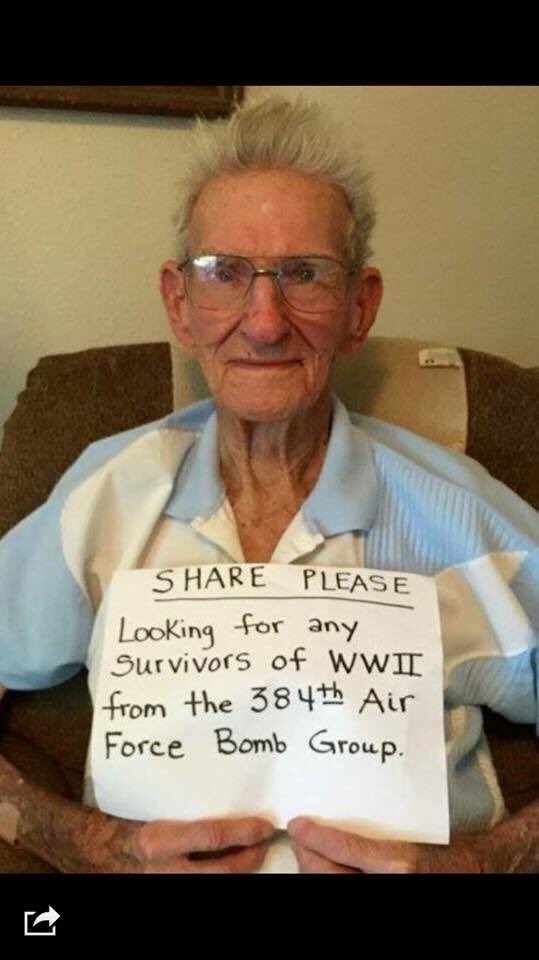 SHARE PLEASE
Looking for any
Survivors of WWII
from the 384th Air
Force Bomb Group.